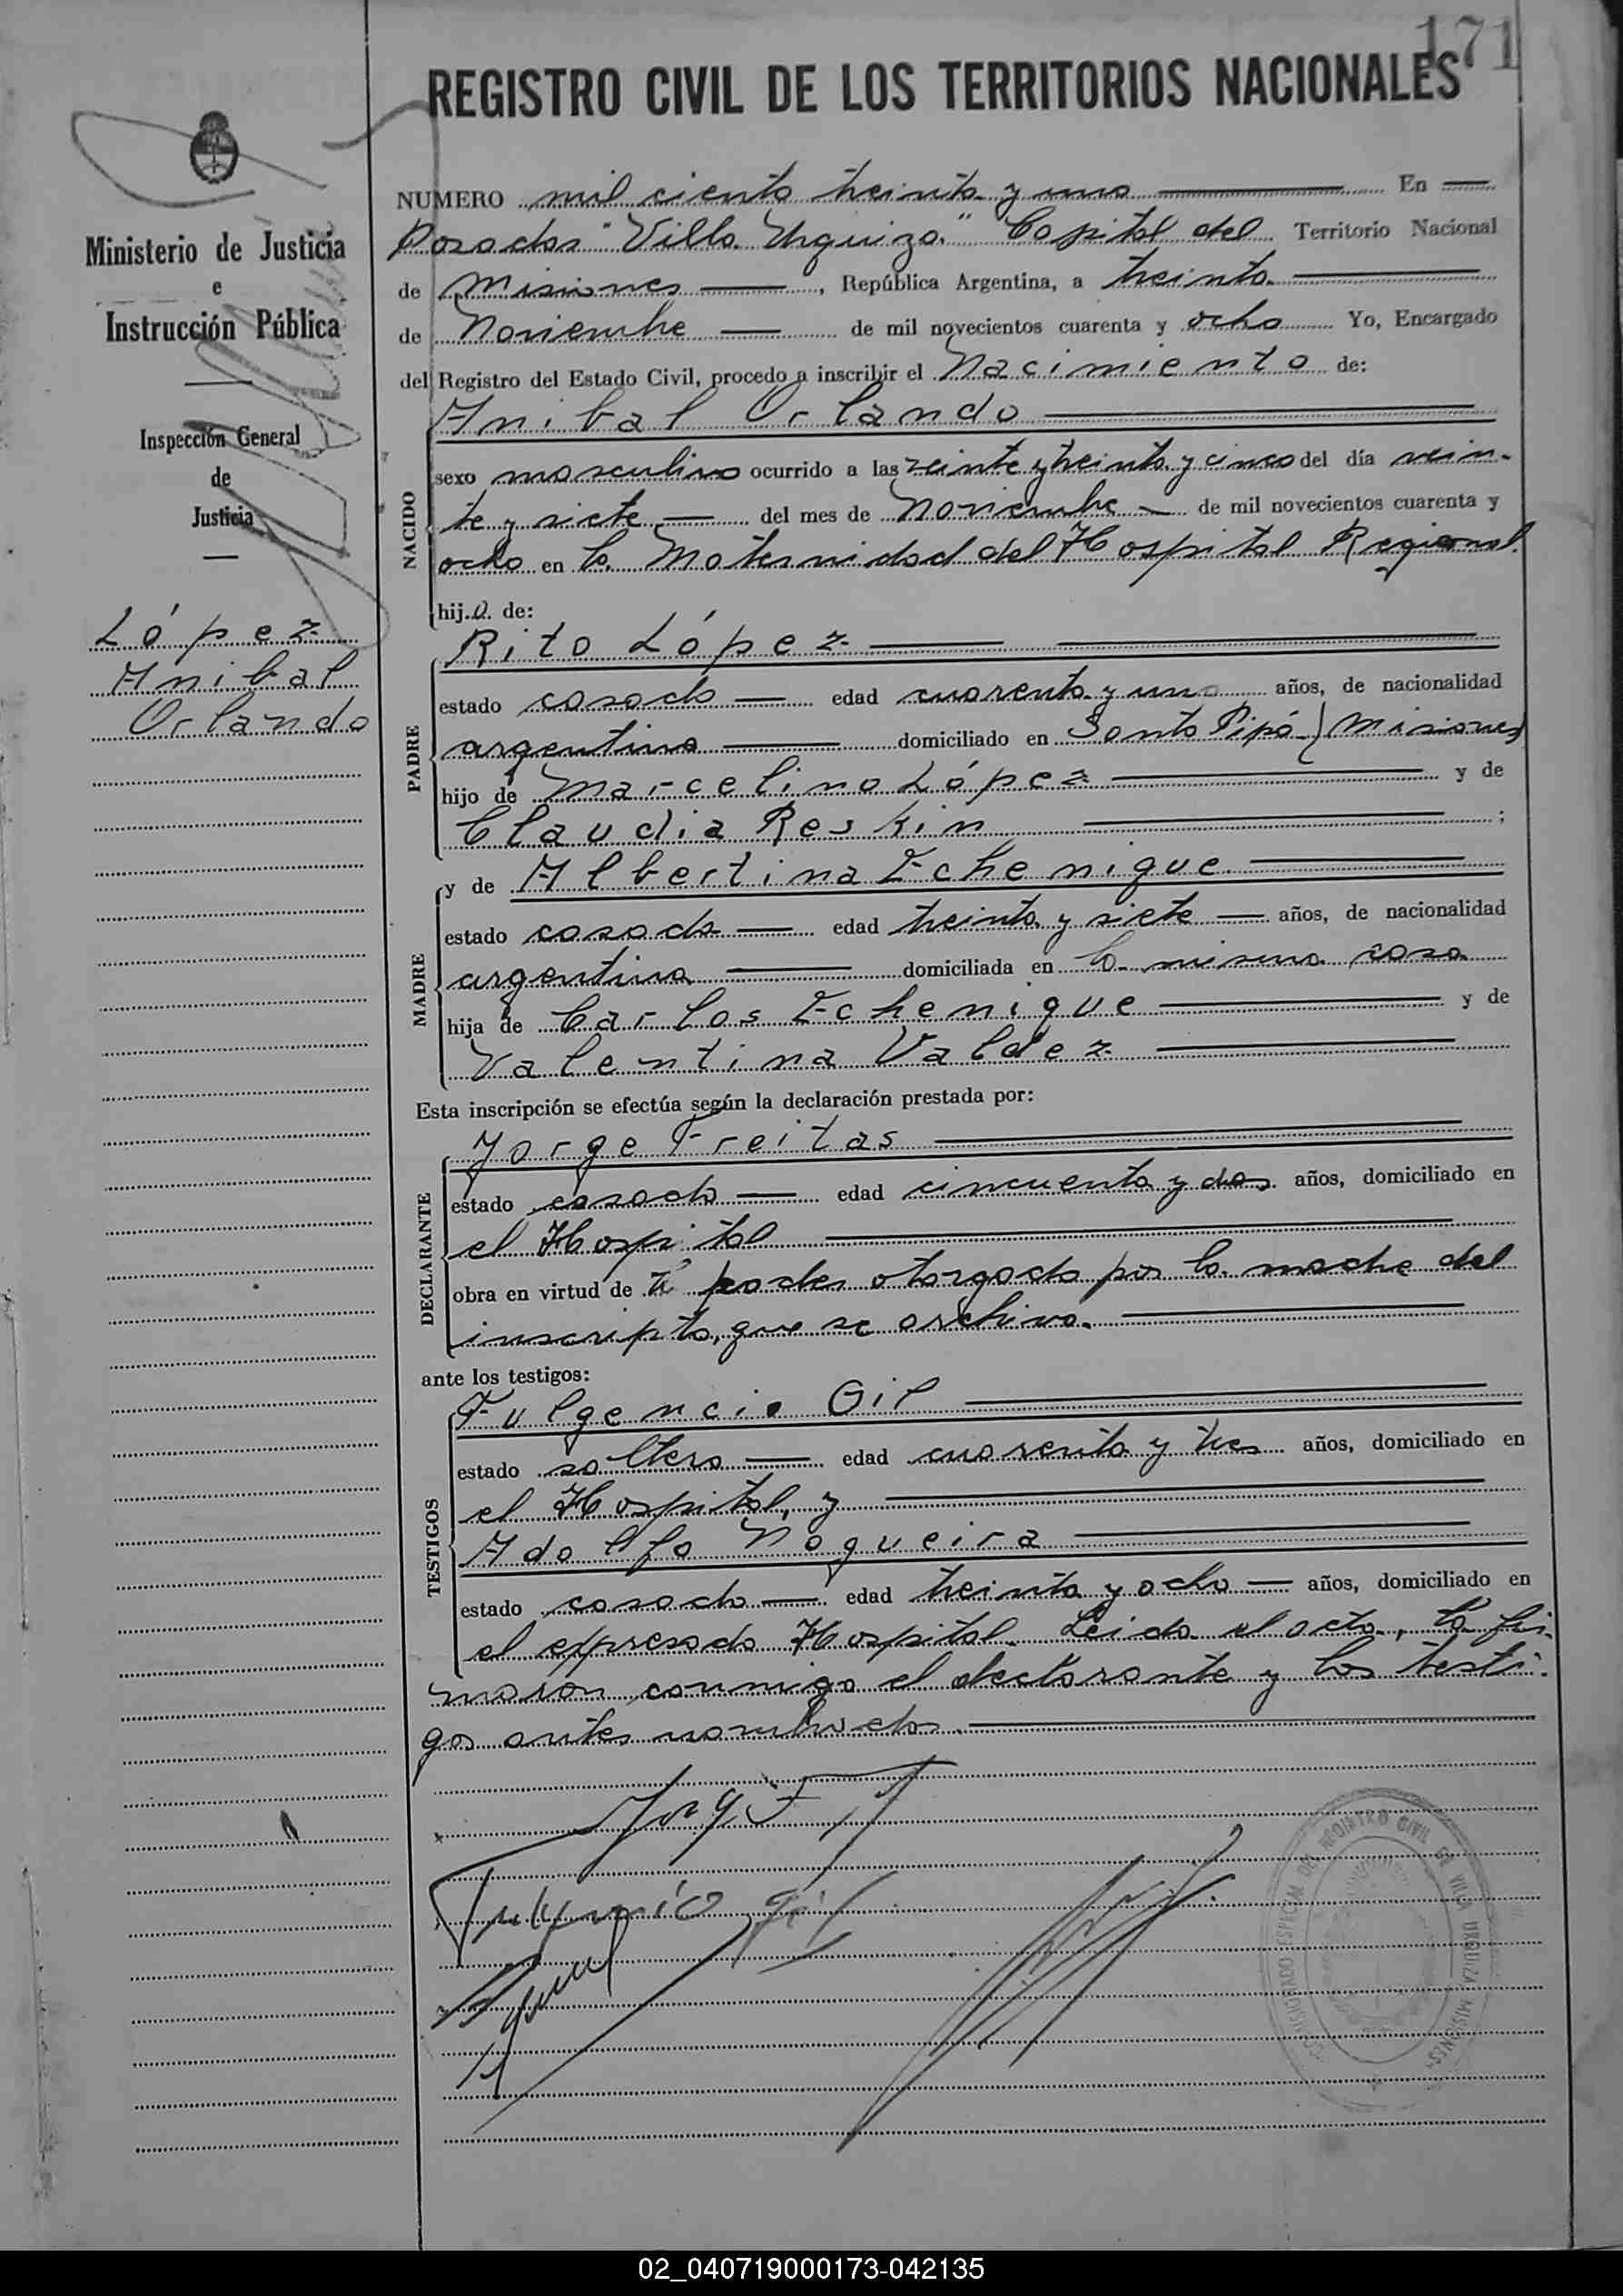 171
REGISTRO CIVIL DE LOS TERRITORIOS NACIONALES
Ministerio de Justicia
e
Instrucción Pública
Inspección General
de
Justicia
López
Anibal
Orlando
NUMERO mil ciento treinta y uno En
Posadas "Villa Urquiza" Capital del Territorio Nacional
de Misiones, República Argentina, a treinta
de Noviembre de mil novecientos cuarenta y ocho Yo, Encargado
del Registro del Estado Civil, procedo a inscribir el Nacimiento de:
Anibal Orlando
NACIDO
sexo masculino ocurrido a las veinte y treinta y cinco del día vein-
te y siete del mes de Noviembre de mil novecientos cuarenta y
ocho en la Maternidad del Hospital Regional.
hijo de:
Rito López
PADRE
estado casado edad cuarenta y uno años, de nacionalidad
argentina domiciliado en Santo Pipó (Misiones)
hijo de Marcelino López y de
Claudia Reskin;
y de Albertina Echenique
MADRE
estado casada edad treinta y siete años, de nacionalidad
argentina domiciliada en la misma casa
hija de Carlos Echenique y de
Valentina Valdez
Esta inscripción se efectúa según la declaración prestada por:
Jorge Freitas
DECLARANTE
estado casado edad cincuenta y dos años, domiciliado en
el Hospital
obra en virtud de poder otorgado por la madre del
inscripto, que se archiva.
ante los testigos:
Fulgencio Gil
TESTIGOS
estado soltero edad cuarenta y tres años, domiciliado en
el Hospital, y
Adolfo Nogueira
estado casado edad treinta y ocho años, domiciliado en
el expresado Hospital. Leida el acta, la fir-
maron conmigo el declarante y los testi-
gos antes nombrados.
Fulgencio Gil
REGISTRO CIVIL DE VILLA URQUIZA MISIONES
02_040719000173-042135